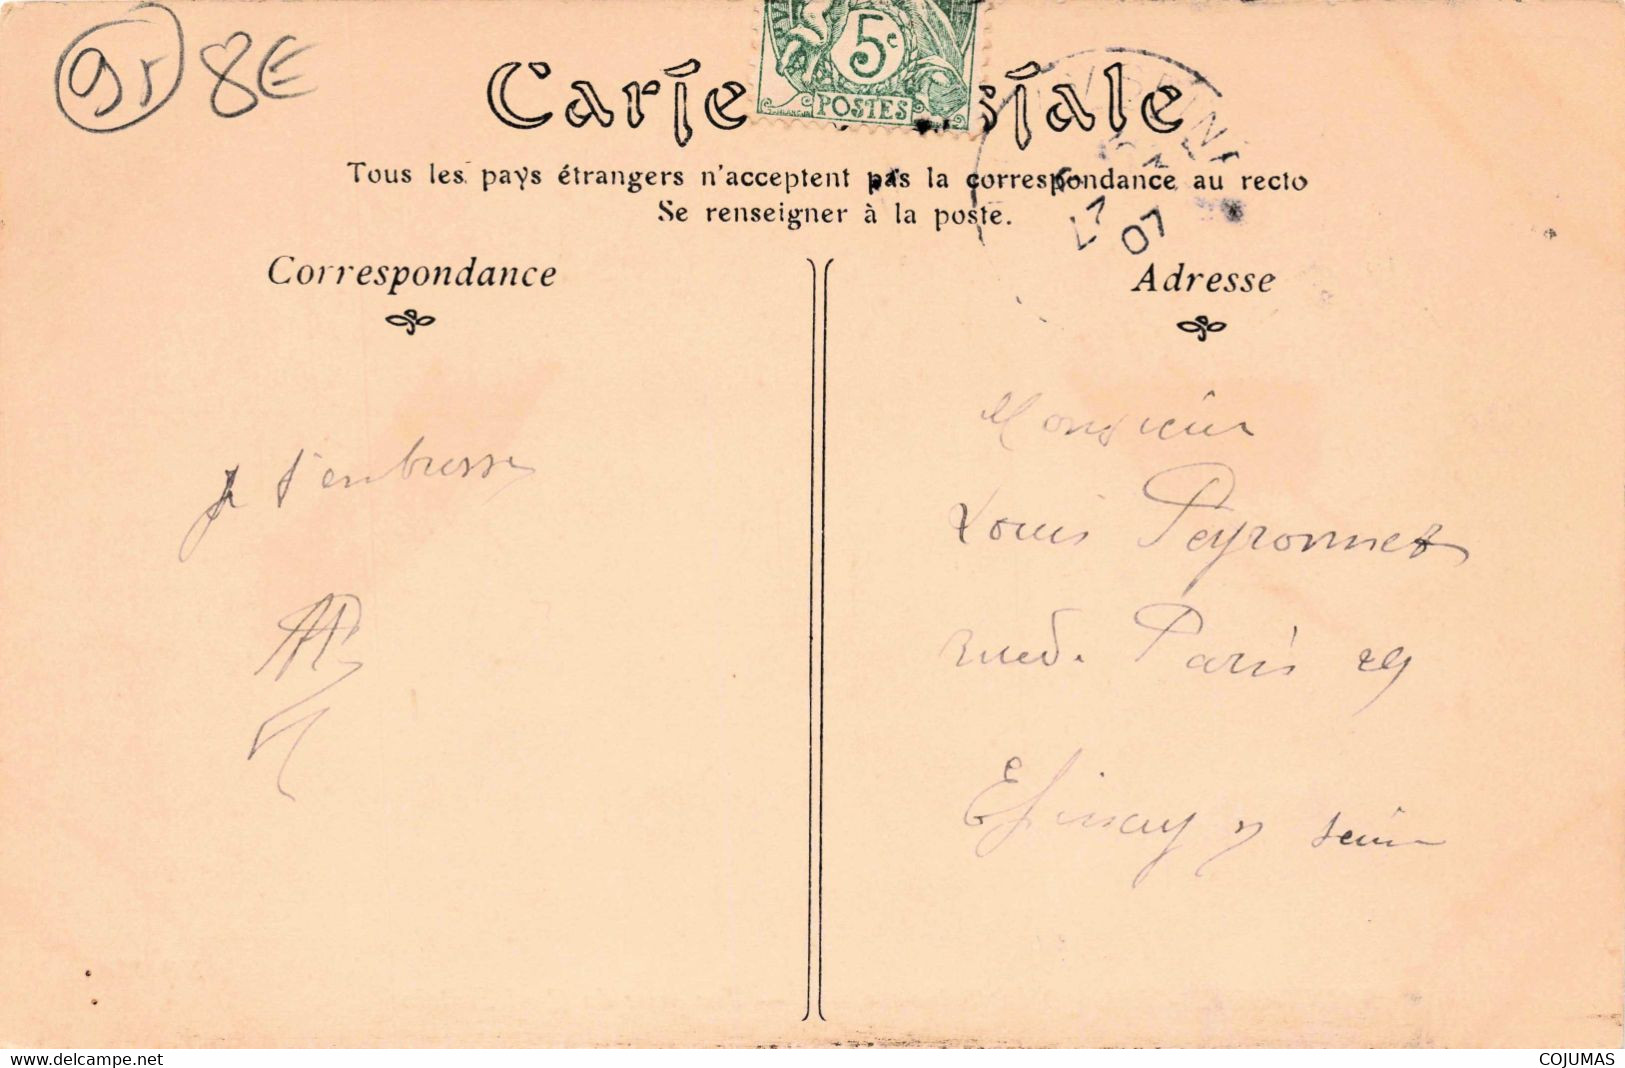 95 8E
5c
POSTES
Carte Postale
Tous les pays étrangers n'acceptent pas la correspondance au recto
Se renseigner à la poste.
07
Correspondance
Adresse
Je t'embrasse
Monsieur
Louis Peyronnet
rue de Paris 29
Epinay s/ Seine
www.delcampe.net
COJUMAS